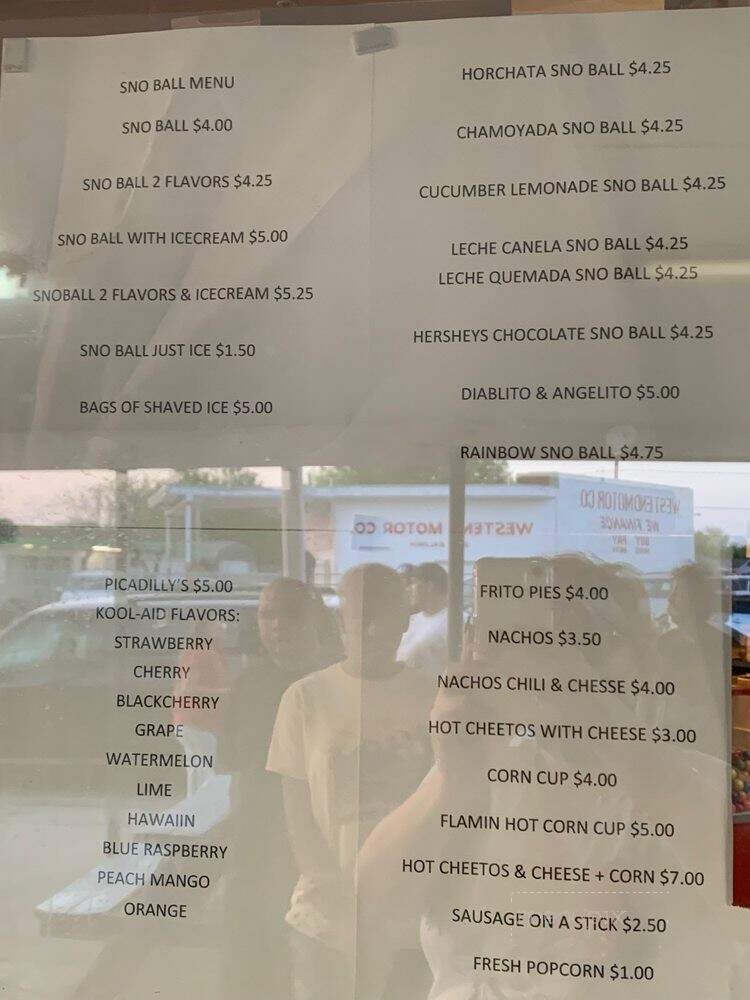 SNO BALL MENU
SNO BALL $4.00
SNO BALL 2 FLAVORS $4.25
SNO BALL WITH ICECREAM $5.00
SNOBALL 2 FLAVORS & ICECREAM $5.25
SNO BALL JUST ICE $1.50
BAGS OF SHAVED ICE $5.00
HORCHATA SNO BALL $4.25
CHAMOYADA SNO BALL $4.25
CUCUMBER LEMONADE SNO BALL $4.25
LECHE CANELA SNO BALL $4.25
LECHE QUEMADA SNO BALL $4.25
HERSHEYS CHOCOLATE SNO BALL $4.25
DIABLITO & ANGELITO $5.00
RAINBOW SNO BALL $4.75
WESTEND MOTOR CO
WE FINANCE
BUY PAY
HERE HERE
WESTEN MOTOR CO.
PICADILLY'S $5.00
KOOL-AID FLAVORS:
STRAWBERRY
CHERRY
BLACKCHERRY
GRAPE
WATERMELON
LIME
HAWAIIN
BLUE RASPBERRY
PEACH MANGO
ORANGE
FRITO PIES $4.00
NACHOS $3.50
NACHOS CHILI & CHESSE $4.00
HOT CHEETOS WITH CHEESE $3.00
CORN CUP $4.00
FLAMIN HOT CORN CUP $5.00
HOT CHEETOS & CHEESE + CORN $7.00
SAUSAGE ON A STICK $2.50
FRESH POPCORN $1.00